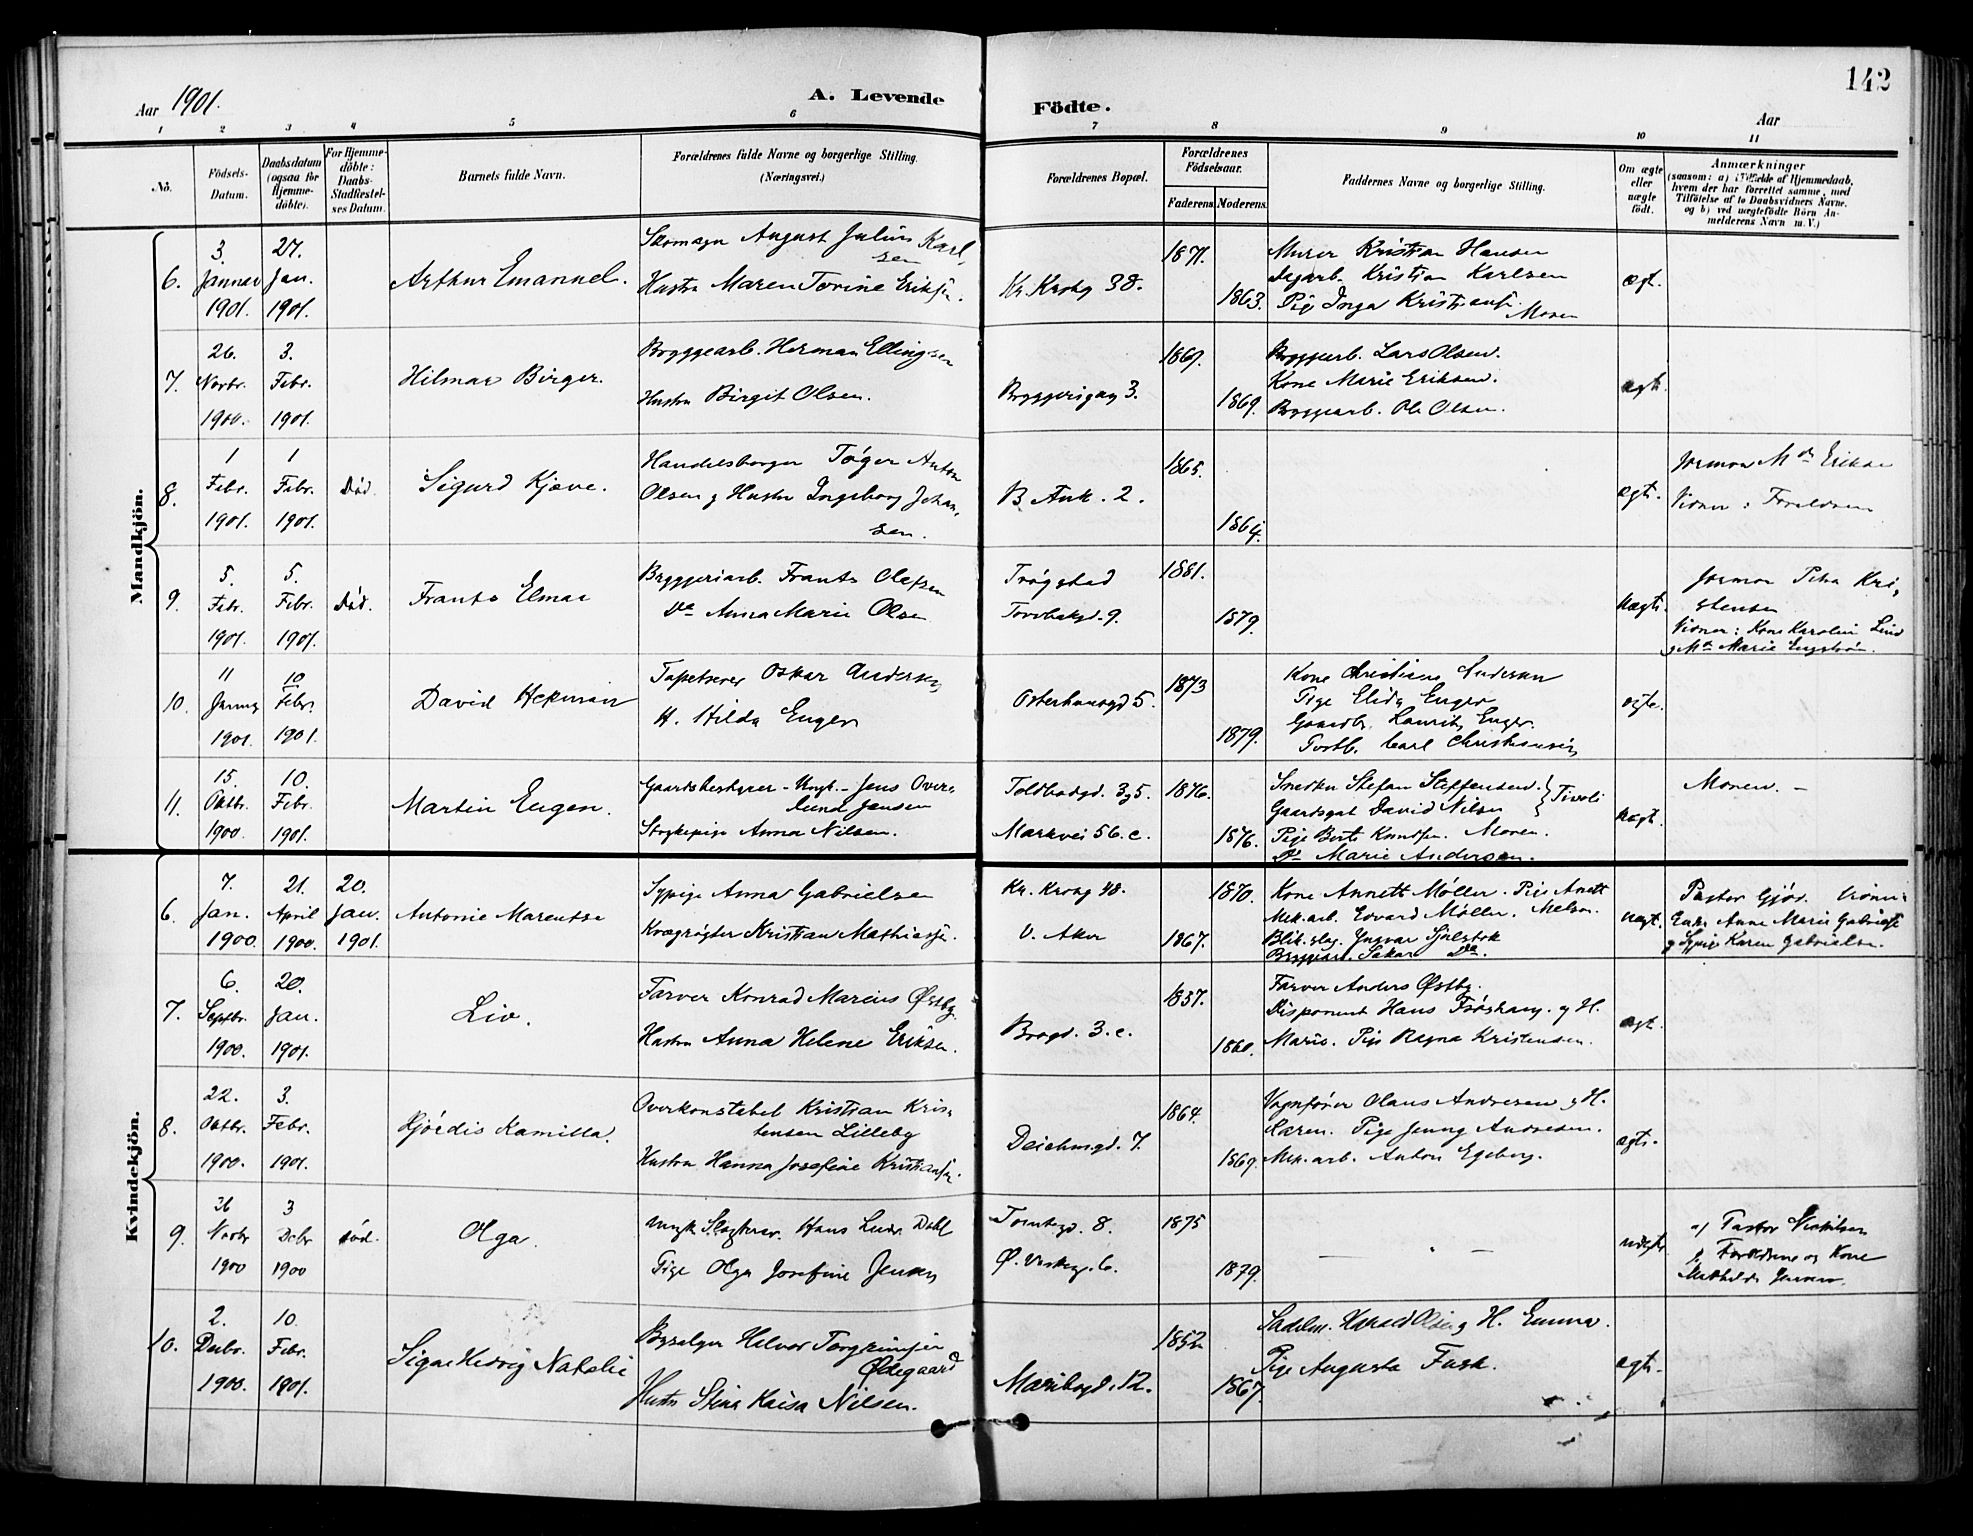 142
Aar 1901.
A. Levende
Födte.
Aar
1 2 3 4 5 6 7 8 9 10 11
No.
Födsels-
Datum.
Daabsdatum
(ogsaa for
Hjemme-
döbte).
For Hjemme-
döbte:
Daabs-
Stadfestel-
ses Datum.
Barnets fulde Navn.
Forældrenes fulde Navne og borgerlige Stilling.
(Næringsvei.)
Forældrenes Bopæl.
Forældrenes
Födselsaar.
Faderens.
Moderens.
Faddernes Navne og borgerlige Stilling.
Om ægte
eller
uægte
födt.
Anmærkninger
(saasom: a) i Tilfælde af Hjemmedaab,
hvem der har forrettet samme, med
Tilföielse af to Daabsvidners Navne,
og b) ved uægtefödte Börn An-
melderens Navn m. V.)
Mandkjön.
6.
3.
Januar
1901.
27.
Jan.
1901.
Arthur Emanuel.
August Julius Karl-
sen
Hustru Maren Torine Eriksen.
Kr. Krohg 38.
1871.
1863.
Murer Kristian Hansen
Dagarb. Kristian Karlsen
Pige Inga Kristians.
Moren
ægt.
7.
26.
Novbr.
1900.
3.
Febr.
1901.
Hilmar Birger.
Bryggearb. Herman Ellingsen
Hustru Birgit Olsen.
Bryggerigag 3.
1869.
1869.
Bryggearb. Lars Olsen.
Kone Marie Eriksen.
Bryggearb. Ole Olsen.
ægt.
8.
1
Febr.
1901.
1
Febr.
1901.
Död.
Sigurd Kjæve.
Handelsborger Töger Anton
Olsen og Hustru Ingeborg Johan-
sen.
B. Ank. 2.
1865.
1864.
ægt.
Jormor Eriksen
Vidner: Forældrene
9.
5.
Febr.
1901.
5.
Febr.
1901.
Död.
Frants Elmar
Bryggeriarb. Frants Olafsen
Anna Marie Olsen
Trögstad
Torvbakgd. 9.
1881.
1879.
uægt.
Jormor Petra Kri-
stensen
Vidner: Kone Karoline Lind
Marie Engström.
10.
11
Januar
1901.
10
Febr.
1901.
David Herman
Tapetserer Oskar Andersen,
H. Hilda Enger
Osterhausgd 5.
1873
1879.
Kone Christiane Andersen
Pige Elida Enger
Laurits Enger.
Carl Christiansen
ægte.
11.
15.
Oktbr.
1900.
10.
Febr.
1901.
Martin Eugen.
Gaardsbestyrer - Ungk. - Jens Over-
lund Jensen
Strykepige Anna Nilsen.
Toldbodgd. 3 g 5.
Markvei 56. c.
1876.
1876.
Snedker Stefan Steffensen.
Gaardsgut David Nilsen
Tivoli
Pige Berte Knudsen. Moren.
Do Marie Andersen.
uægt.
Moren. -
Kvindekjön.
6.
7.
Jan.
1900.
21.
April
1900.
20.
Jan.
1901.
Antonie Marentse
Sypige Anna Gabrielsen
Kvægrögter Kristian Mathiassen.
Kr. Krohg 48.
V. Aker
1870.
1867.
Kone Annett Möller. Pige Anett
Mek. arb. Edvard Möller. Nelson.
Blik. slag. Yngvar
Bryggearb. Oskar Do.
uægt.
Pastor Gjör. Vidner:
Enke Anne Marie Gabriels
og Sypige Karen Gabrielsen.
7.
6.
Septbr.
1900.
20.
Jan.
1901.
Liv.
Farver Konrad Marius Østby.
Hustru Anna Helene Eriksen.
Brogd. 3. c.
1857.
1860.
Farver Anders Østby.
Disponent Hans Fröshaug. og H.
Marie. Pige Ragna Kristensen.
ægt.
8.
22.
Oktbr.
1900.
3.
Febr.
1901.
Hjördis Kamilla.
Overkonstabel Kristian Kris-
tensen Lilleby
Hustru Hanna Josefine Kristiansen.
Deichmsgd. 7.
1864.
1869.
Vognförer Olaus Andresen og H.
Karen. Pige Jenny Andresen.
Mek. arb. Anton Egeberg.
ægt.
9.
26
Novbr
1900
3
Debr
1900
död.
Olga.
Ungk. Hans Ludv. Dahl
Pige Olga Josefine Jensen
Tomtegd. 8.
1875
1879.
- " -
uægte
a) Pastor
Forældrene og Kone
Mathilde Jensen.
10.
2.
Debr.
1900.
10.
Febr.
1901.
Signe Hedvig Natalie
Halvor Torgrimsen
Ødegaard
Hustru Stina Kaisa Nilsen.
Maribogd. 12.
1852
1867.
Sadelm. Harald Olsen og H. Emma.
Pige Augusta Fusk.
ægt.